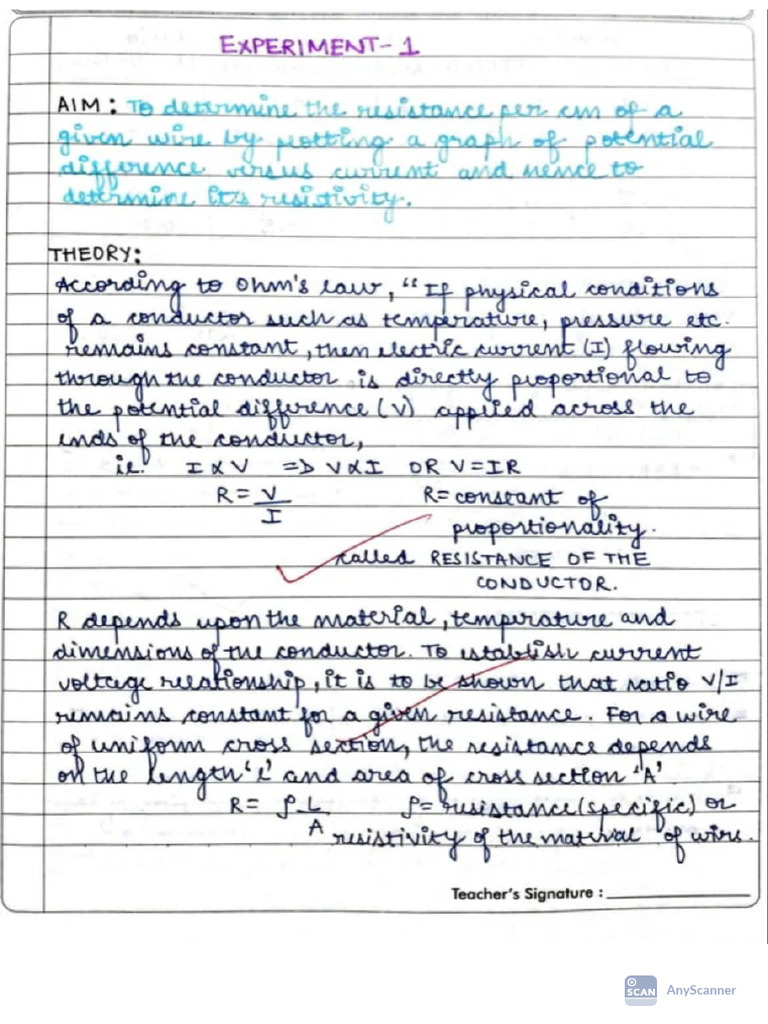 EXPERIMENT-1
AIM: To determine the resistance per cm of a
given wire by plotting a graph of potential
difference versus current and hence to
determine it's resistivity.
THEORY:
According to Ohm's law, "If physical conditions
of a conductor such as temperature, pressure etc.
remains constant, then electric current (I) flowing
through the conductor is directly proportional to
the potential difference (V) applied across the
ends of the conductor,
ie. I ∝ V => V ∝ I OR V = IR
R = V/I R = constant of
proportionality.
called RESISTANCE OF THE
CONDUCTOR.
R depends upon the material, temperature and
dimensions of the conductor. To establish current
voltage relationship, it is to be shown that ratio V/I
remains constant for a given resistance. For a wire
of uniform cross section, the resistance depends
on the length 'l' and area of cross section 'A'
R = ρ L/A ρ = resistance (specific) or
resistivity of the material of wire.
Teacher's Signature :
SCAN AnyScanner